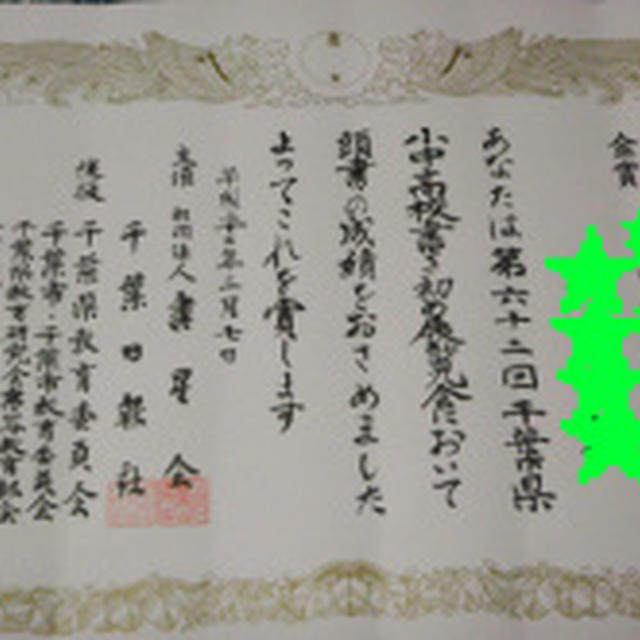 金賞
あなたは第六十二回千葉県
小中高校書き初め展覧会において
頭書の成績をおさめました
よってこれを賞します
平成二十三年二月七日
主催 社団法人 書星会
千葉日報社
後援 千葉県教育委員会
千葉市・千葉市教育委員会
千葉県教育研究会書写教育部会